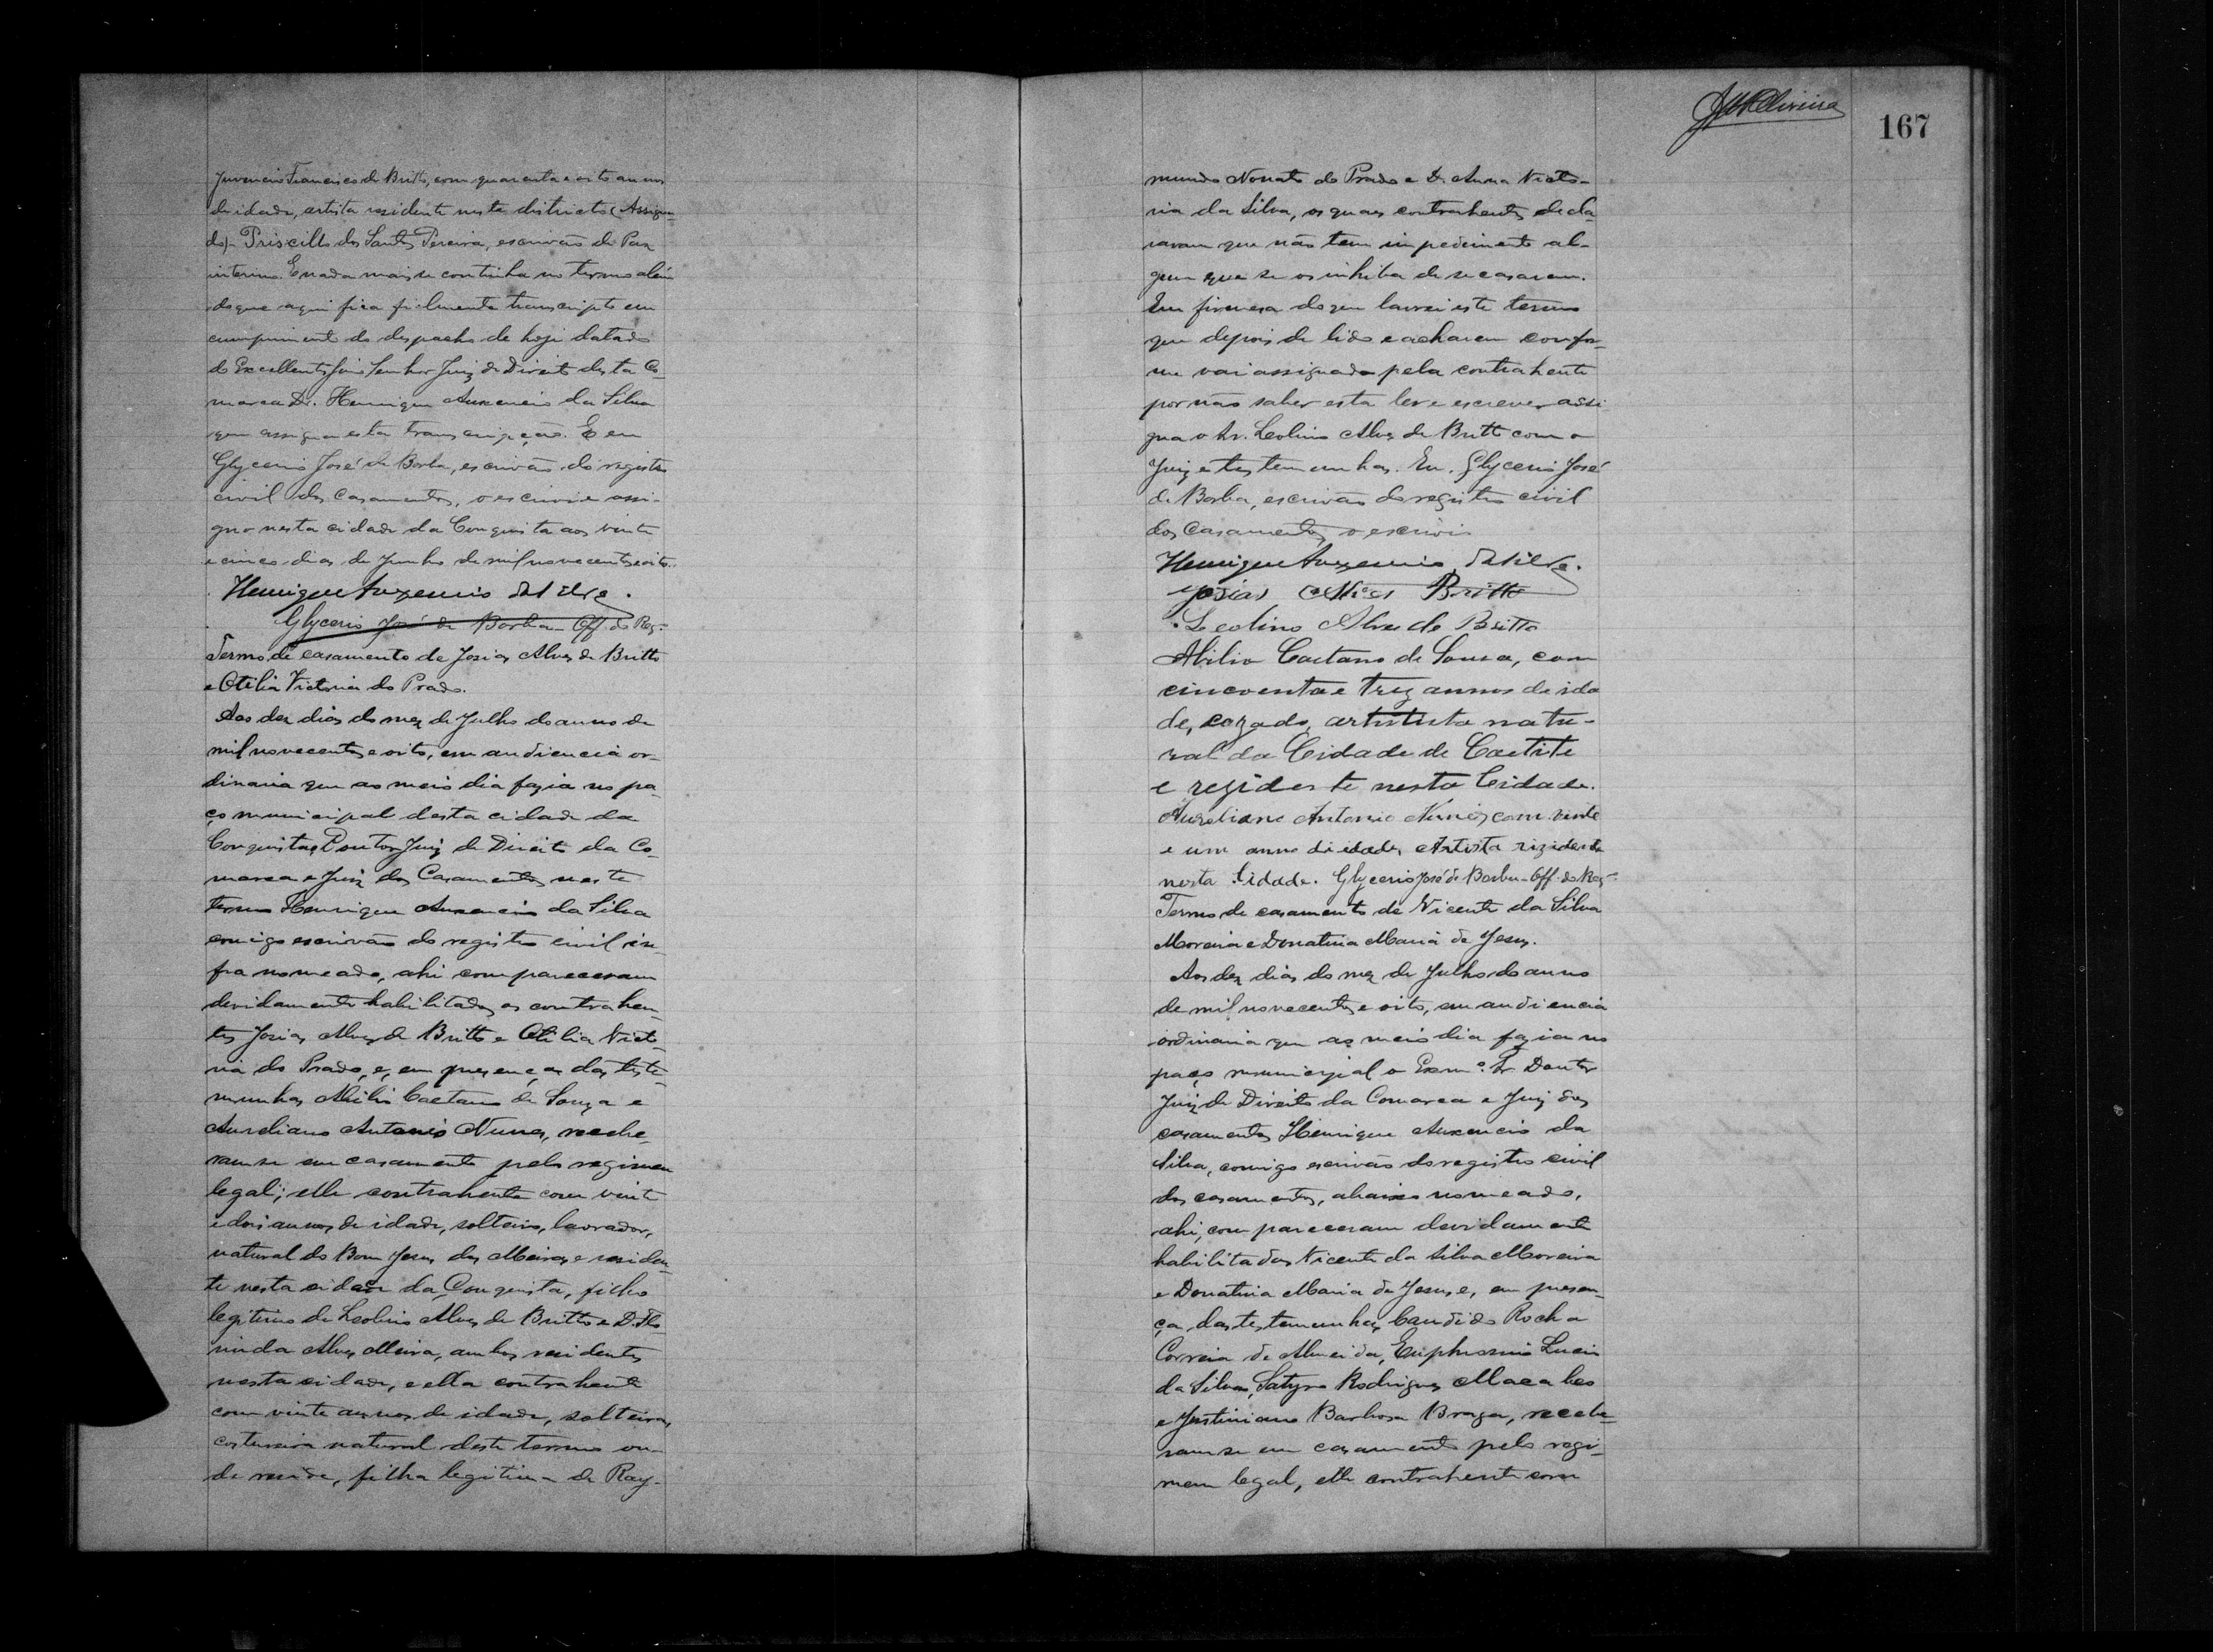 Juvencio Francisco de Britto, com quarenta e oito annos
de idade, artista residente neste districto (Assigna-
do)- Priscillo dos Santos Pereira, escrivão de Paz
interino. E nada mais se continha no termo além
do que aqui fica fielmente transcripto em
cumprimento do despacho de hoje datado
do Excellentissimo Senhor Juiz de Direito desta Co-
marca Dr. Henrique Auxencio da Silva
que assigna esta transcripção. E eu
Glycerio José de Borba, escrivão do registro
civil dos Casamentos, o escrivi e assi-
gno nesta cidade da Conquista aos vinte
e cinco dias de Junho de mil novecentos e oito.
Henrique Auxencio da Silva.
Glycerio José de Borba - Off. do Reg.
Termo de casamento de Josias Alves de Britto
e Otilia Victoria do Prado.
Aos dez dias do mez de Julho do anno de
mil novecentos e oito, em audiencia or-
dinaria que ao meio dia fazia no pa-
ço municipal desta cidade da
Conquista, o Doutor Juiz de Direito da Co-
marca e Juiz dos Casamentos neste
termo Henrique Auxencio da Silva
comigo escrivão do registro civil in-
fra nomeado, ahi compareceram
devidamente habilitados os contrahen-
tes Josias Alves de Britto e Otilia Victo-
ria do Prado, e, em presença das teste-
munhas Abilio Caetano de Souza e
Aureliano Antonio Nunes, recebe-
ram-se em casamento pelo regimen
legal; elle contrahente com vinte
e dois annos de idade, solteiro, lavrador,
natural do Bom Jesus dos Meiras e residen-
te nesta cidade da Conquista, filho
legitimo de Leolino Alves de Britto e D. Flo-
rinda Alves Meira, ambos residentes
nesta cidade, e ella contrahente
com vinte annos de idade, solteira,
costureira natural deste termo on-
de reside, filha legitima de Ray-
167
mundo Nonato do Prado e D. Anna Victo-
ria da Silva, os quaes contrahentes decla-
ravam que não tem impedimento al-
gum que se os inhiba de se casarem.
Em firmesa do que lavrei este termo
que depois de lido e acharem confor-
me vai assignado pela contrahente
por não saber esta ler e escrever assi
gna o Sr. Leolino Alves de Britto com o
Juiz e testemunhas. Eu, Glycerio José
de Borba, escrivão do registro civil
dos Casamentos, o escrivi
Henrique Auxencio da Silva.
Josias Alves Britto
Leolino Alves de Britto
Abilio Caetano de Sousa, com
cincoenta e trez annos de ida
de, cazado, artista natu-
ral da Cidade de Caetite
e rezidente nesta Cidade.
Aureliano Antonio Nunes com vinte
e um anno di edade, Artista rizidente
nesta Cidade. Glycerio José de Borba - Off. do Reg.
Termo de casamento de Vicente da Silva
Moreira e Donatina Maria de Jesus.
Aos dez dias do mez de Julho do anno
de mil novecentos e oito, em audiencia
ordinaria que ao meio dia fazia no
paço municipal o Exmº. Sr. Doutor
Juiz de Direito da Comarca e Juiz dos
casamentos Henrique Auxencio da
Silva, comigo escrivão do registro civil
dos casamentos, abaixo nomeado,
ahi, compareceram devidamente
habilitados Vicente da Silva Moreira
e Donatina Maria de Jesus e, em presen-
ça das testemunhas, Candido Rocha
Correia de Almeida, Euphrasio Lucio
da Silva, Satyro Rodrigues Macabeo
e Justiniano Barbosa Braga, recebe-
ram-se em casamento pelo regi-
men legal, elle contrahente com